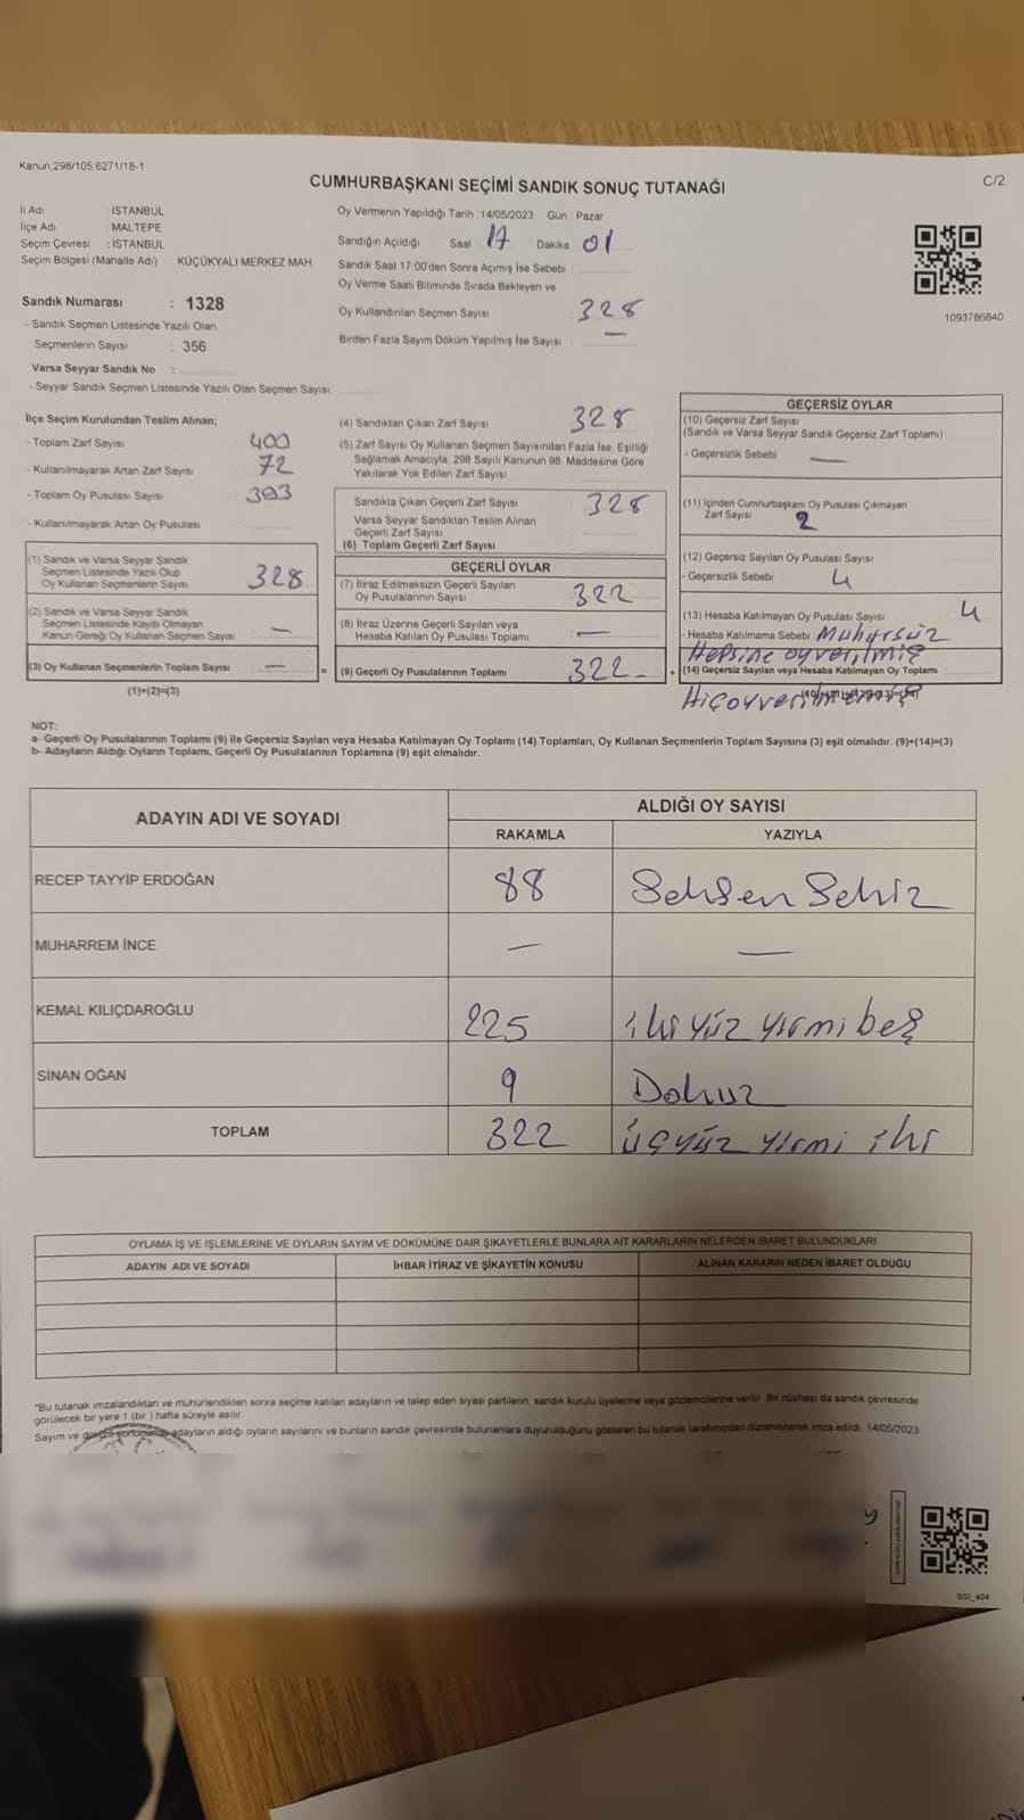 Kanun:298/105;6271/18-1
C/2
CUMHURBAŞKANI SEÇİMİ SANDIK SONUÇ TUTANAĞI
İl Adı : İSTANBUL
İlçe Adı : MALTEPE
Seçim Çevresi : İSTANBUL
Seçim Bölgesi (Mahalle Adı) KÜÇÜKYALI MERKEZ MAH.
Sandık Numarası : 1328
- Sandık Seçmen Listesinde Yazılı Olan
Seçmenlerin Sayısı : 356
Varsa Seyyar Sandık No :
- Seyyar Sandık Seçmen Listesinde Yazılı Olan Seçmen Sayısı:
Oy Vermenin Yapıldığı Tarih :14/05/2023 Gün : Pazar
Sandığın Açıldığı Saat 17 Dakika 01
Sandık Saat 17:00'den Sonra Açımış İse Sebebi :
Oy Verme Saati Bitiminde Sırada Bekleyen ve
Oy Kullandırılan Seçmen Sayısı : 328
Birden Fazla Sayım Döküm Yapılmış İse Sayısı : —
1093786840
İlçe Seçim Kurulundan Teslim Alınan;
- Toplam Zarf Sayısı 400
- Kullanılmayarak Artan Zarf Sayısı 72
- Toplam Oy Pusulası Sayısı 393
- Kullanılmayarak Artan Oy Pusulası
(1) Sandık ve Varsa Seyyar Sandık
Seçmen Listesinde Yazılı Olup
Oy Kullanan Seçmenlerin Sayısı 328
(2) Sandık ve Varsa Seyyar Sandık
Seçmen Listesinde Kayıtlı Olmayan
Kanun Gereği Oy Kullanan Seçmen Sayısı —
(3) Oy Kullanan Seçmenlerin Toplam Sayısı —
(1)+(2)=(3)
(4) Sandıktan Çıkan Zarf Sayısı 328
(5) Zarf Sayısı Oy Kullanan Seçmen Sayısından Fazla İse, Eşitliği
Sağlamak Amacıyla, 298 Sayılı Kanunun 98. Maddesine Göre
Yakılarak Yok Edilen Zarf Sayısı
Sandıkta Çıkan Geçerli Zarf Sayısı 328
Varsa Seyyar Sandıktan Teslim Alınan
Geçerli Zarf Sayısı
(6) Toplam Geçerli Zarf Sayısı
GEÇERLİ OYLAR
(7) İtiraz Edilmeksizin Geçerli Sayılan
Oy Pusulalarının Sayısı 322
(8) İtiraz Üzerine Geçerli Sayılan veya
Hesaba Katılan Oy Pusulası Toplamı —
= (9) Geçerli Oy Pusulalarının Toplamı 322
GEÇERSİZ OYLAR
(10) Geçersiz Zarf Sayısı
(Sandık ve Varsa Seyyar Sandık Geçersiz Zarf Toplamı)
- Geçersizlik Sebebi —
(11) İçinden Cumhurbaşkanı Oy Pusulası Çıkmayan
Zarf Sayısı 2
(12) Geçersiz Sayılan Oy Pusulası Sayısı
- Geçersizlik Sebebi 4
(13) Hesaba Katılmayan Oy Pusulası Sayısı 4
- Hesaba Katılmama Sebebi Mühürsüz
Hepsine oy verilmiş
+ (14) Geçersiz Sayılan veya Hesaba Katılmayan Oy Toplamı
Hiç oy verilmemiş
NOT:
a- Geçerli Oy Pusulalarının Toplamı (9) ile Geçersiz Sayılan veya Hesaba Katılmayan Oy Toplamı (14) Toplamları, Oy Kullanan Seçmenlerin Toplam Sayısına (3) eşit olmalıdır. (9)+(14)=(3)
b- Adayların Aldığı Oyların Toplamı, Geçerli Oy Pusulalarının Toplamına (9) eşit olmalıdır.
ADAYIN ADI VE SOYADI
ALDIĞI OY SAYISI
RAKAMLA YAZIYLA
RECEP TAYYİP ERDOĞAN 88 Seksen Sekiz
MUHARREM İNCE — —
KEMAL KILIÇDAROĞLU 225 iki yüz yirmi beş
SİNAN OĞAN 9 Dokuz
TOPLAM 322 üçyüz yirmi iki
OYLAMA İŞ VE İŞLEMLERİNE VE OYLARIN SAYIM VE DÖKÜMÜNE DAİR ŞİKAYETLERLE BUNLARA AİT KARARLARIN NELERDEN İBARET BULUNDUKLARI
ADAYIN ADI VE SOYADI İHBAR İTİRAZ VE ŞİKAYETİN KONUSU ALINAN KARARIN NEDEN İBARET OLDUĞU
"Bu tutanak imzalandıktan ve mühürlendikten sonra seçime katılan adayların ve talep eden siyasi partilerin, sandık kurulu üyelerine veya gözlemcilerine verilir. Bir nüshası da sandık çevresinde
görülecek bir yere 1 (bir) hafta süreyle asılır.
Sayım ve adayların aldığı oyların sayılarını ve bunların sandık çevresinde bulunanlara duyurulduğunu gösteren bu tutanak tarafımızdan düzenlenerek imza edildi. 14/05/2023